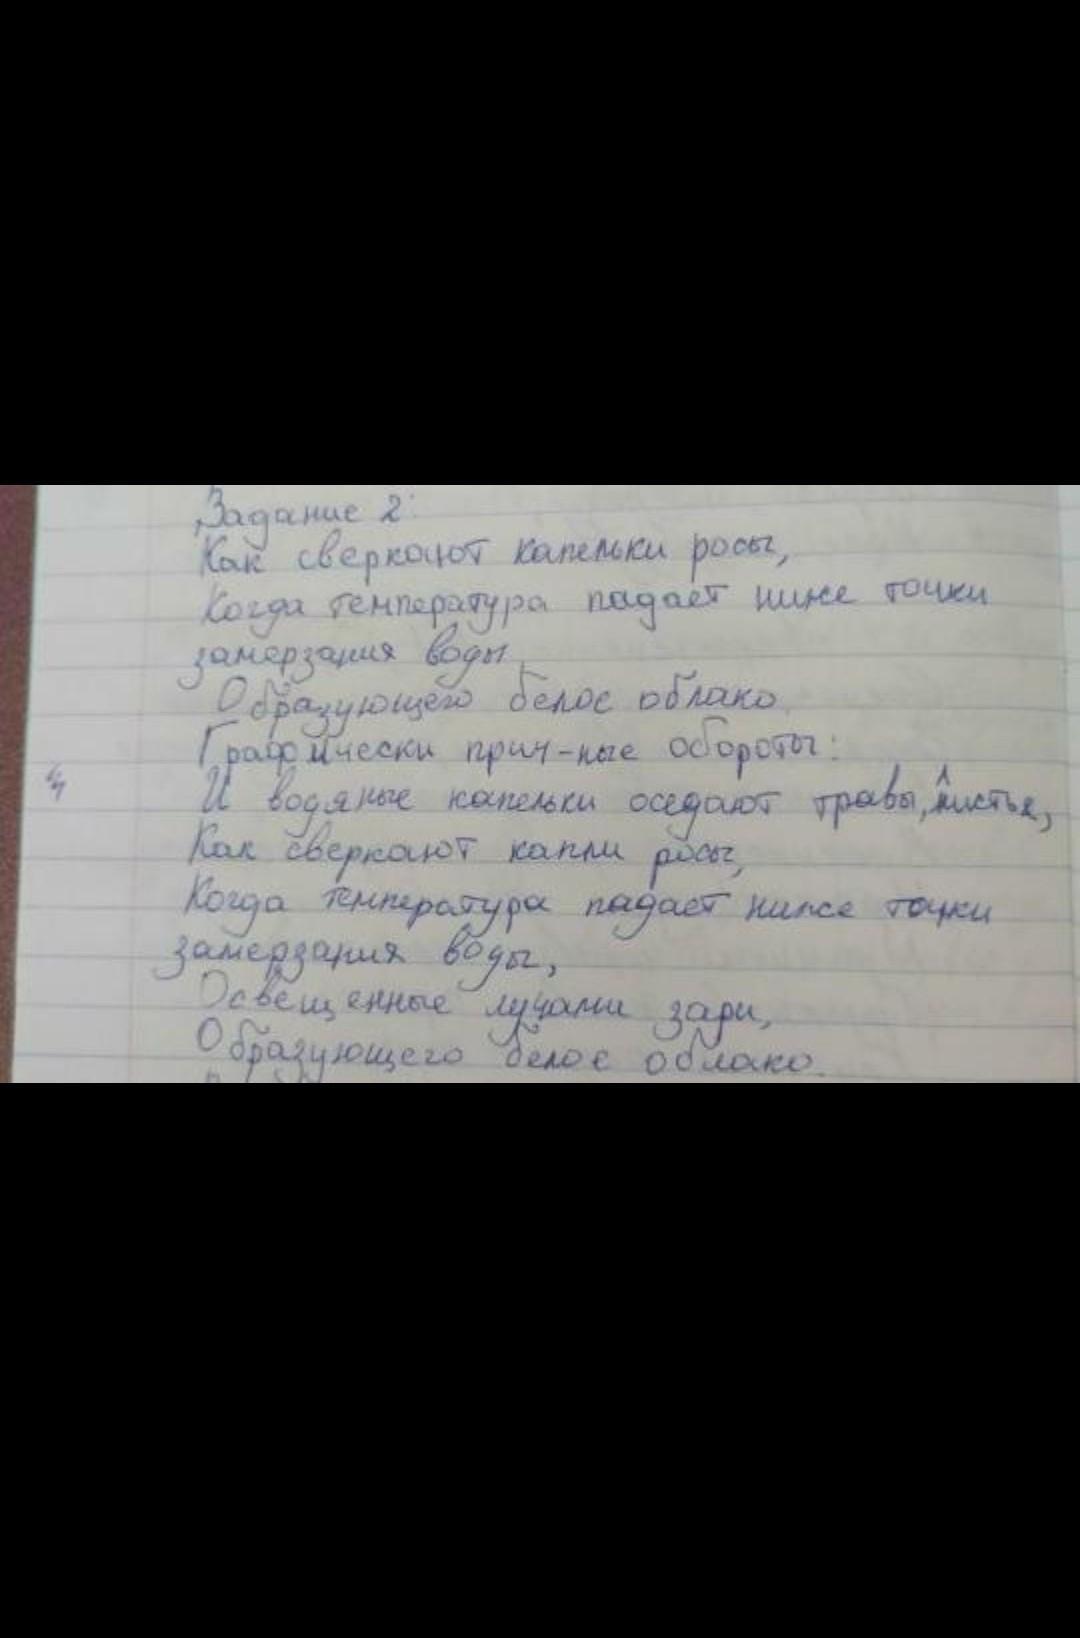 Задание 2:
Как сверкают капельки росы,
Когда температура падает ниже точки
замерзания воды.
Образующего белое облако.
Графически прич-ные обороты:
И водяные капельки оседают травы, листья,
Как сверкают капли росы,
Когда температура падает ниже точки
замерзания воды,
Освещенные лучами зари,
Образующего белое облако.